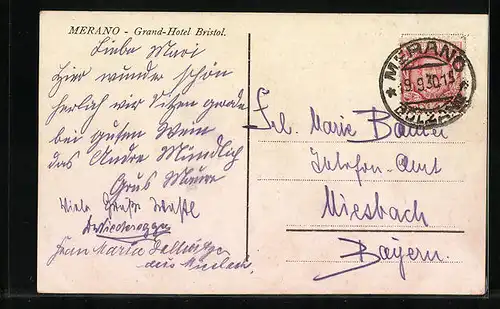 MERANO - Grand-Hotel Bristol.
Liebe Mari
Hier wunder schön
herlich wir Sitzen grade
bei guten Wein
das Andre Mündlich
Grus
Viele Grüße
Frau Maria
aus
MERANO
9.9.30.15
BOLZANO
Frl. Marie Bauer
Telefon-Amt
Miesbach
Bayern.